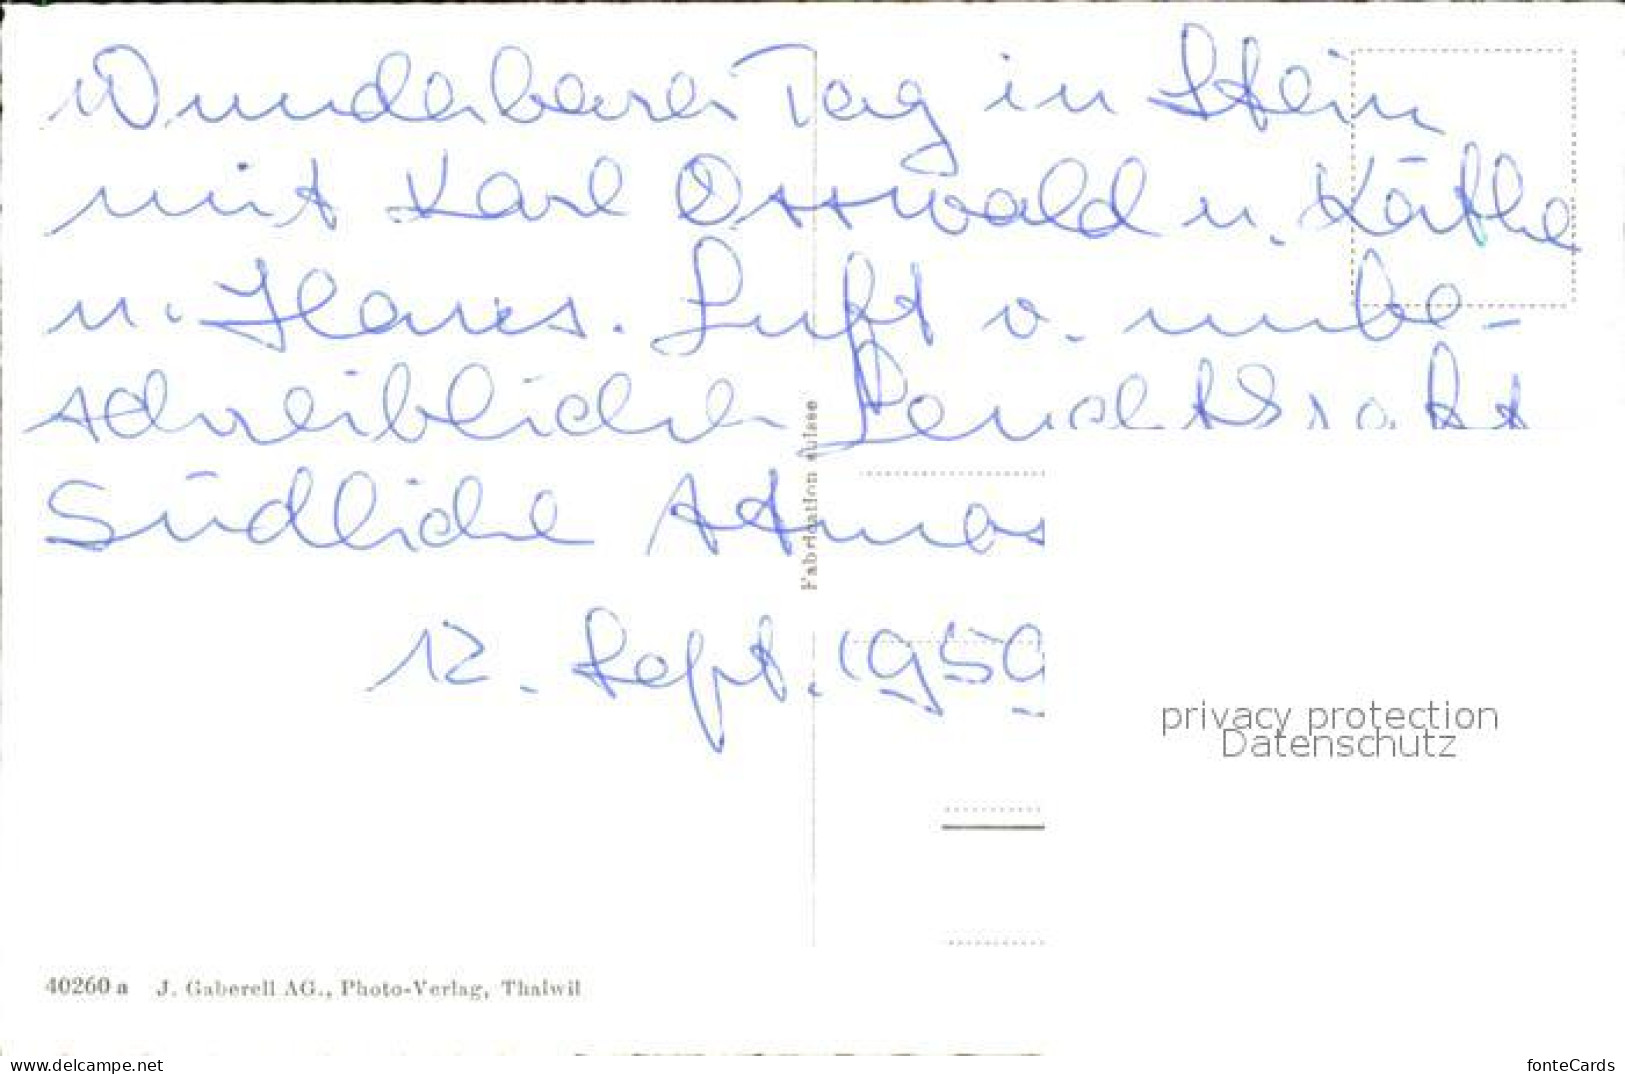 Wunderbarer Tag in Stein
mit Karl Osswald u. Käthe
u. Hans. Luft v. unbe-
schreiblicher Leuchtkraft
Südliche Atmos
12. Sept. 1959
Fabrication suisse
privacy protection
Datenschutz
40260 a J. Gaberell AG., Photo-Verlag, Thalwil
www.delcampe.net
fonteCards